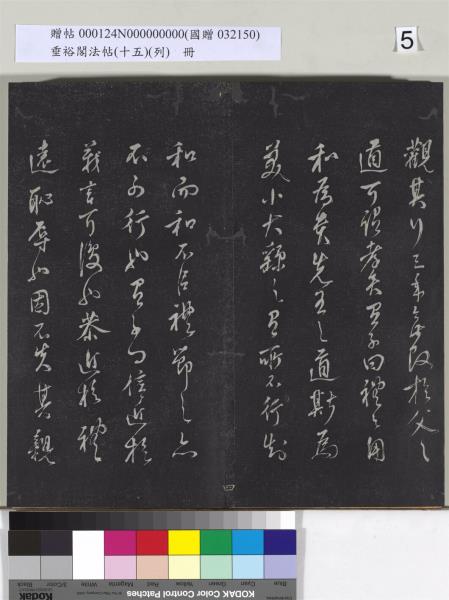 贈帖 000124N000000000(國贈 032150)
垂裕閣法帖(十五)(列) 冊
5
觀其行三年無改於父之
道可謂孝矣有子曰禮之用
和為貴先王之道斯為
美小大繇之有所不行知
和而和不以禮節之亦
不可行也有子曰信近於
義言可復也恭近於禮
遠恥辱也因不失其親
四
KODAK Color Control Patches
Blue Cyan Green Yellow Red Magenta White 3/Color Black